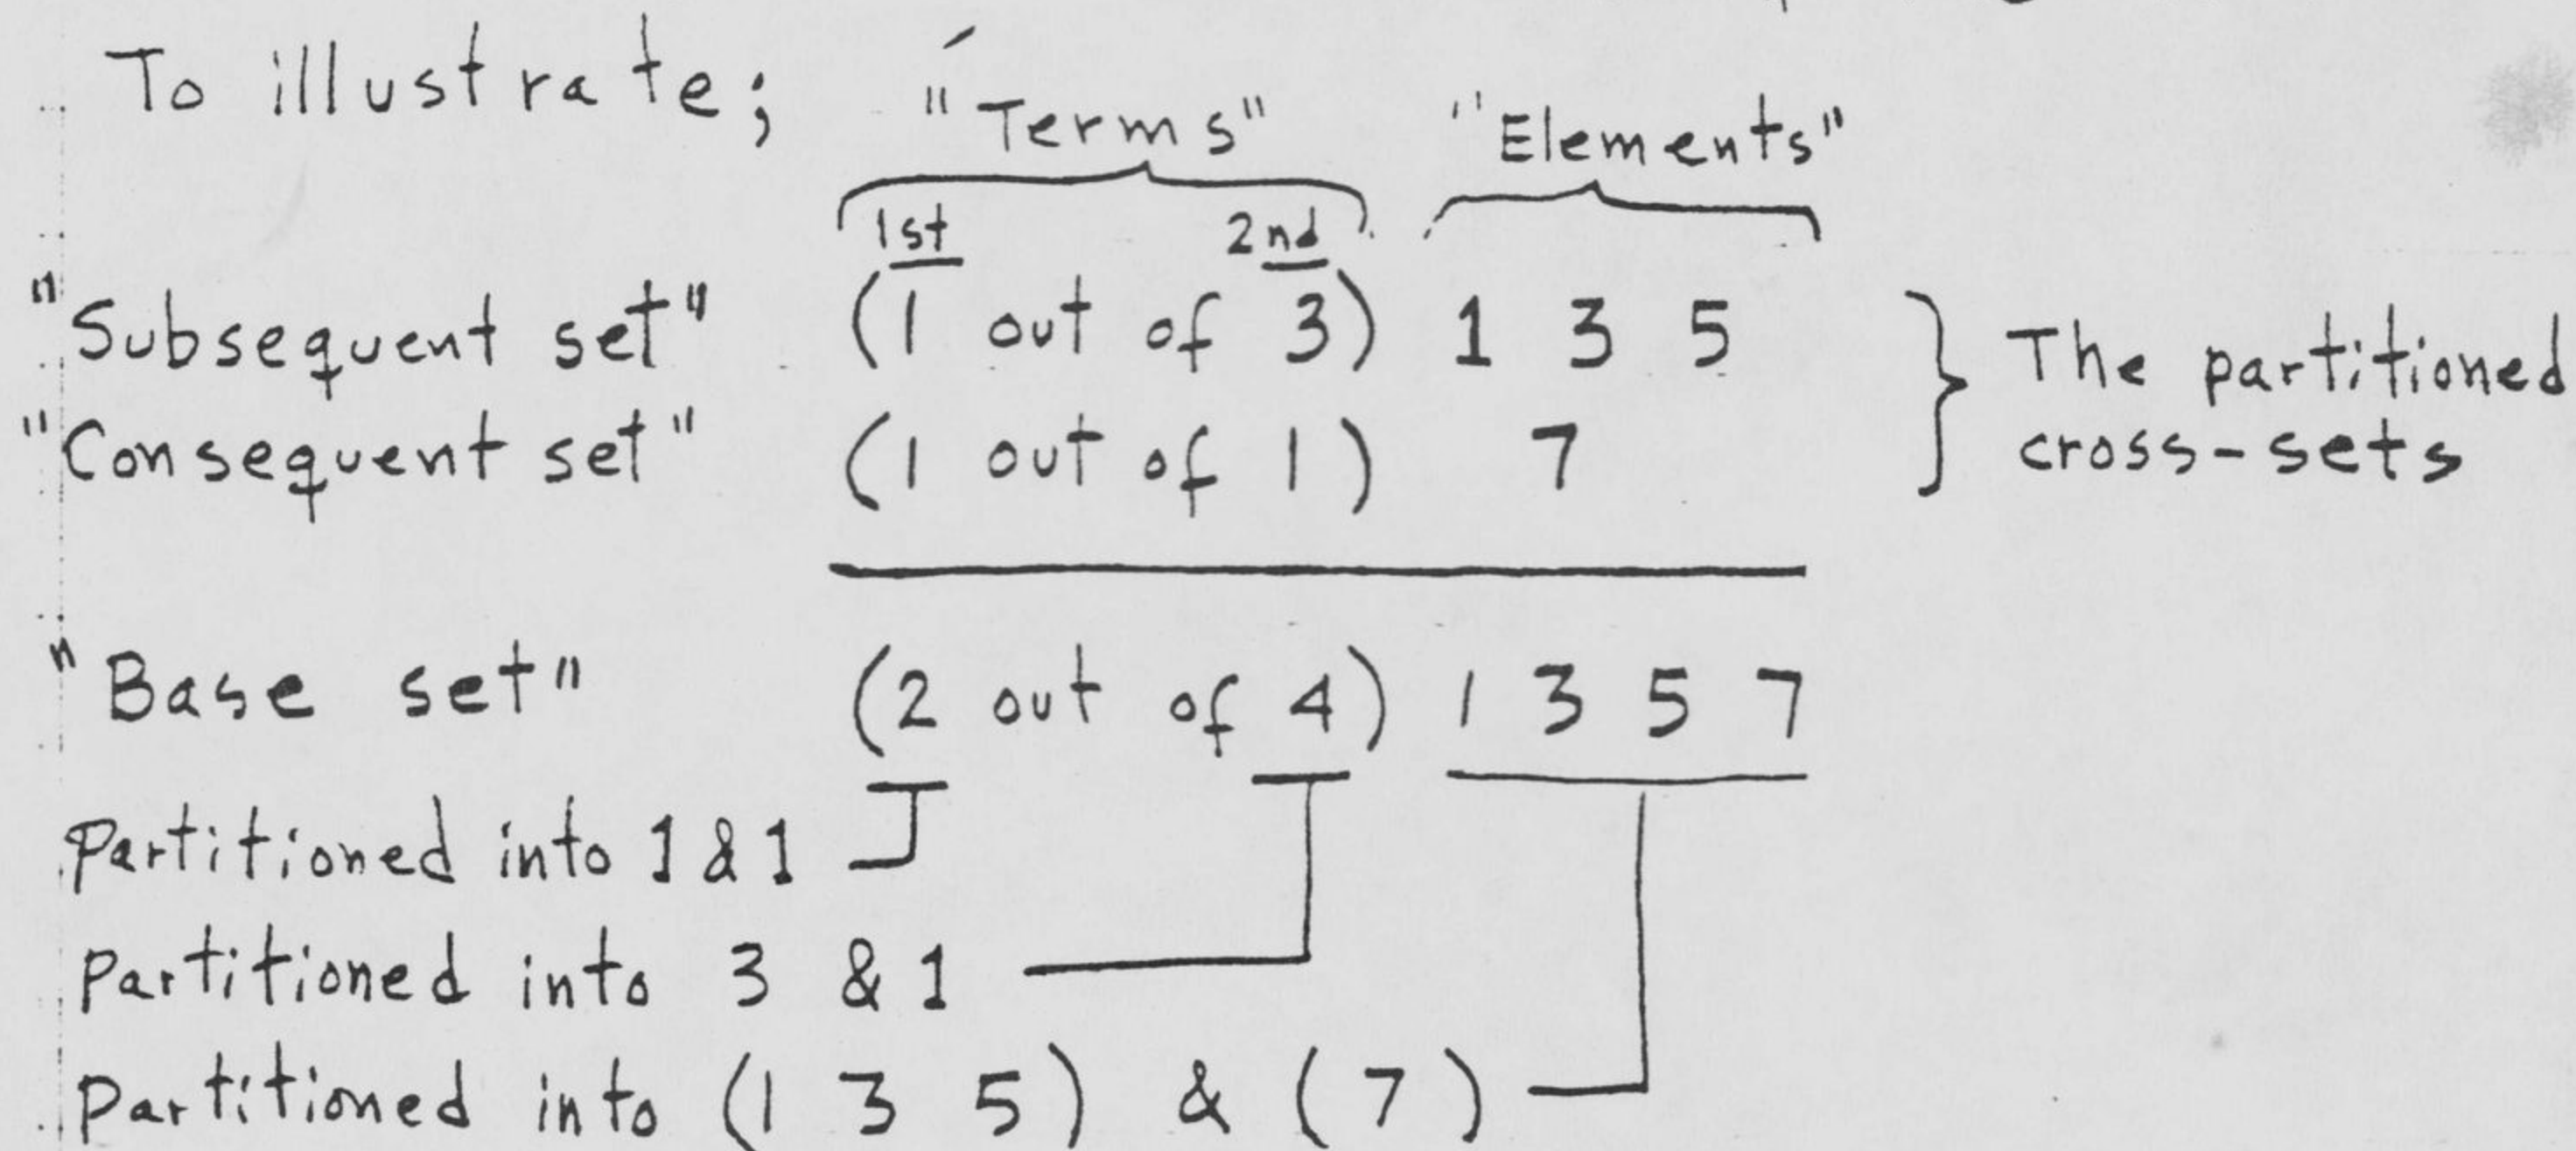 To illustrate; "Terms" "Elements"
1st 2nd
"Subsequent set" (1 out of 3) 1 3 5 The partitioned
"Consequent set" (1 out of 1) 7 cross-sets
"Base set" (2 out of 4) 1 3 5 7
Partitioned into 1 & 1
Partitioned into 3 & 1
Partitioned into (1 3 5) & (7)